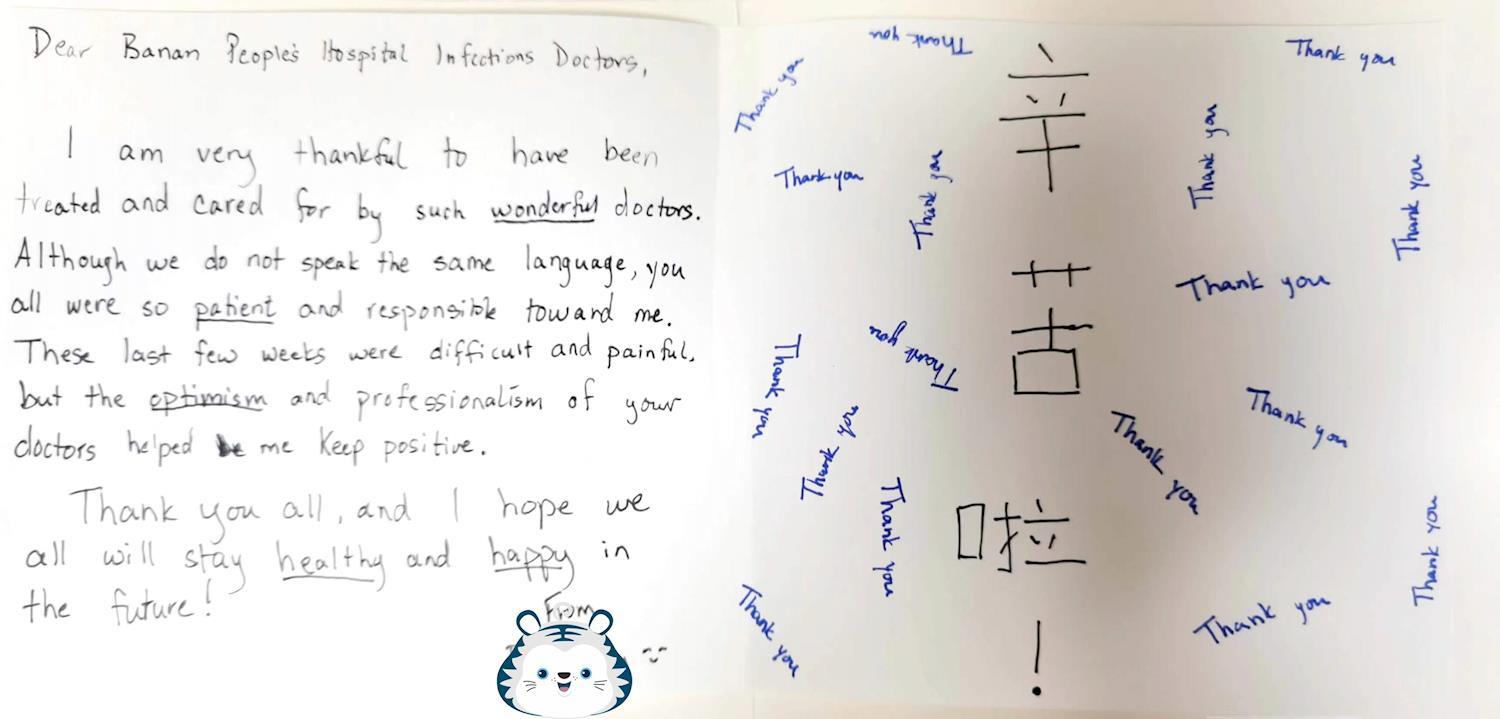 Dear Banan People's Hospital Infections Doctors,
I am very thankful to have been
treated and cared for by such wonderful doctors.
Although we do not speak the same language, you
all were so patient and responsible toward me.
These last few weeks were difficult and painful,
but the optimism and professionalism of your
doctors helped me keep positive.
Thank you all, and I hope we
all will stay healthy and happy in
the future!
From
Thank you
Thank you
Thank you
Thank you
Thank you
Thank you
Thank you
Thank you
Thank you
Thank you
Thank you
Thank you
Thank you
Thank you
Thank you
Thank you
Thank you
辛苦啦!